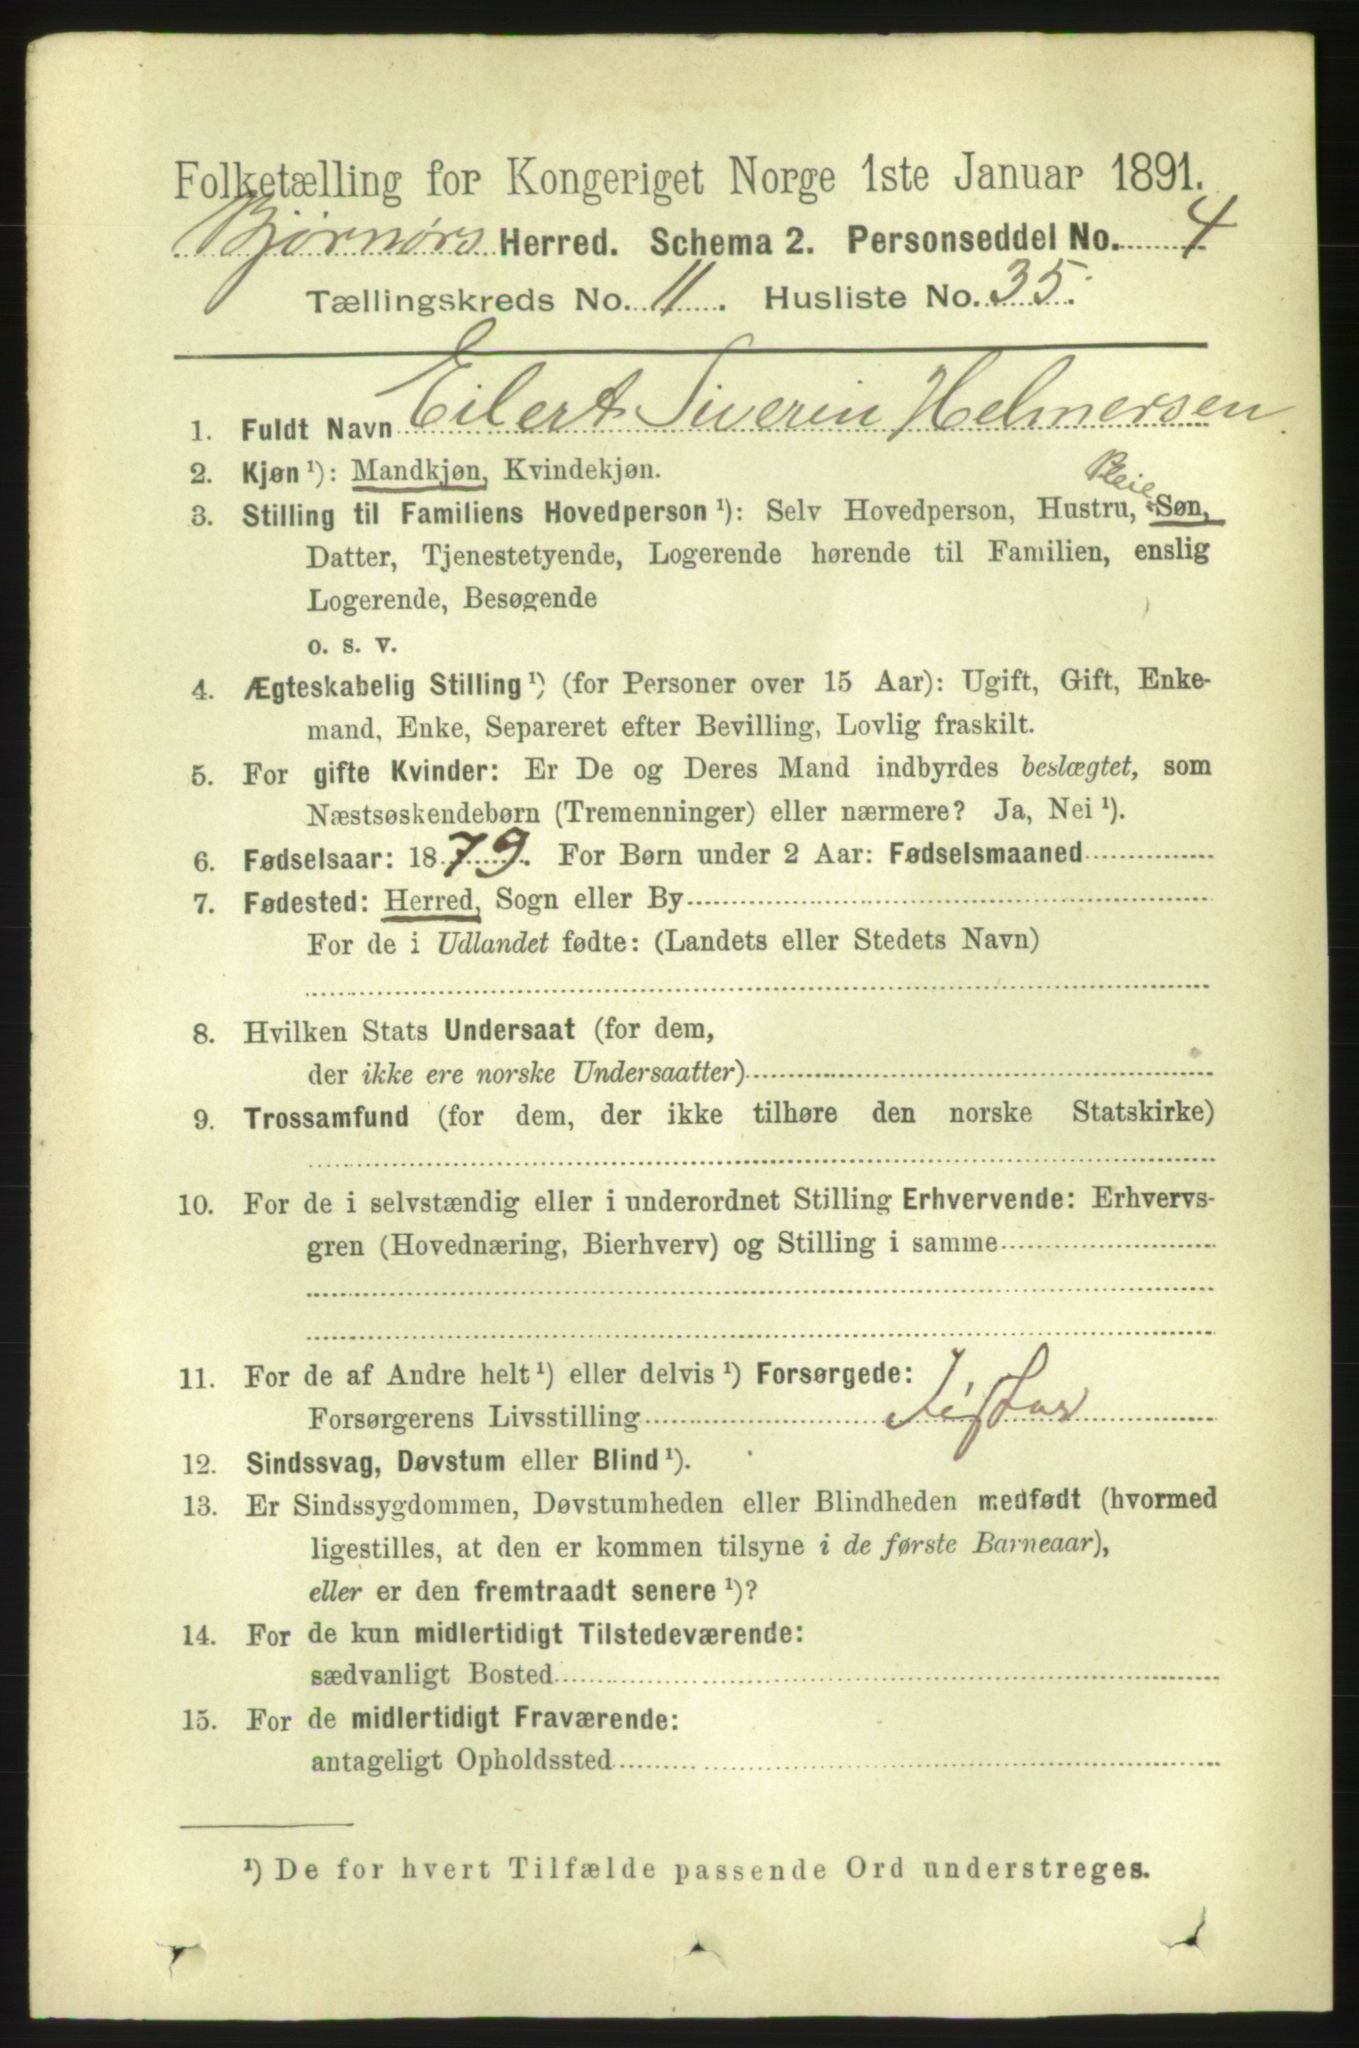 Folketælling for Kongeriget Norge 1ste Januar 1891.
Bjørnørs Herred. Schema 2. Personseddel No. 4
Tællingskreds No. 11. Husliste No. 35.
1. Fuldt Navn Eilert Siverin Helmersen
2. Kjøn ¹): Mandkjøn, Kvindekjøn.
Pleie-
3. Stilling til Familiens Hovedperson ¹): Selv Hovedperson, Hustru, Søn,
Datter, Tjenestetyende, Logerende hørende til Familien, enslig
Logerende, Besøgende
o. s. v.
4. Ægteskabelig Stilling ¹) (for Personer over 15 Aar): Ugift, Gift, Enke-
mand, Enke, Separeret efter Bevilling, Lovlig fraskilt.
5. For gifte Kvinder: Er De og Deres Mand indbyrdes beslægtet, som
Næstsøskendebørn (Tremenninger) eller nærmere? Ja, Nei ¹).
6. Fødselsaar: 1879. For Børn under 2 Aar: Fødselsmaaned
7. Fødested: Herred, Sogn eller By
For de i Udlandet fødte: (Landets eller Stedets Navn)
8. Hvilken Stats Undersaat (for dem,
der ikke ere norske Undersaatter)
9. Trossamfund (for dem, der ikke tilhøre den norske Statskirke)
10. For de i selvstændig eller i underordnet Stilling Erhvervende: Erhvervs-
gren (Hovednæring, Bierhverv) og Stilling i samme
11. For de af Andre helt ¹) eller delvis ¹) Forsørgede:
Forsørgerens Livsstilling
12. Sindssvag, Døvstum eller Blind ¹).
13. Er Sindssygdommen, Døvstumheden eller Blindheden medfødt (hvormed
ligestilles, at den er kommen tilsyne i de første Barneaar),
eller er den fremtraadt senere ¹)?
14. For de kun midlertidigt Tilstedeværende:
sædvanligt Bosted
15. For de midlertidigt Fraværende:
antageligt Opholdssted
¹) De for hvert Tilfælde passende Ord understreges.